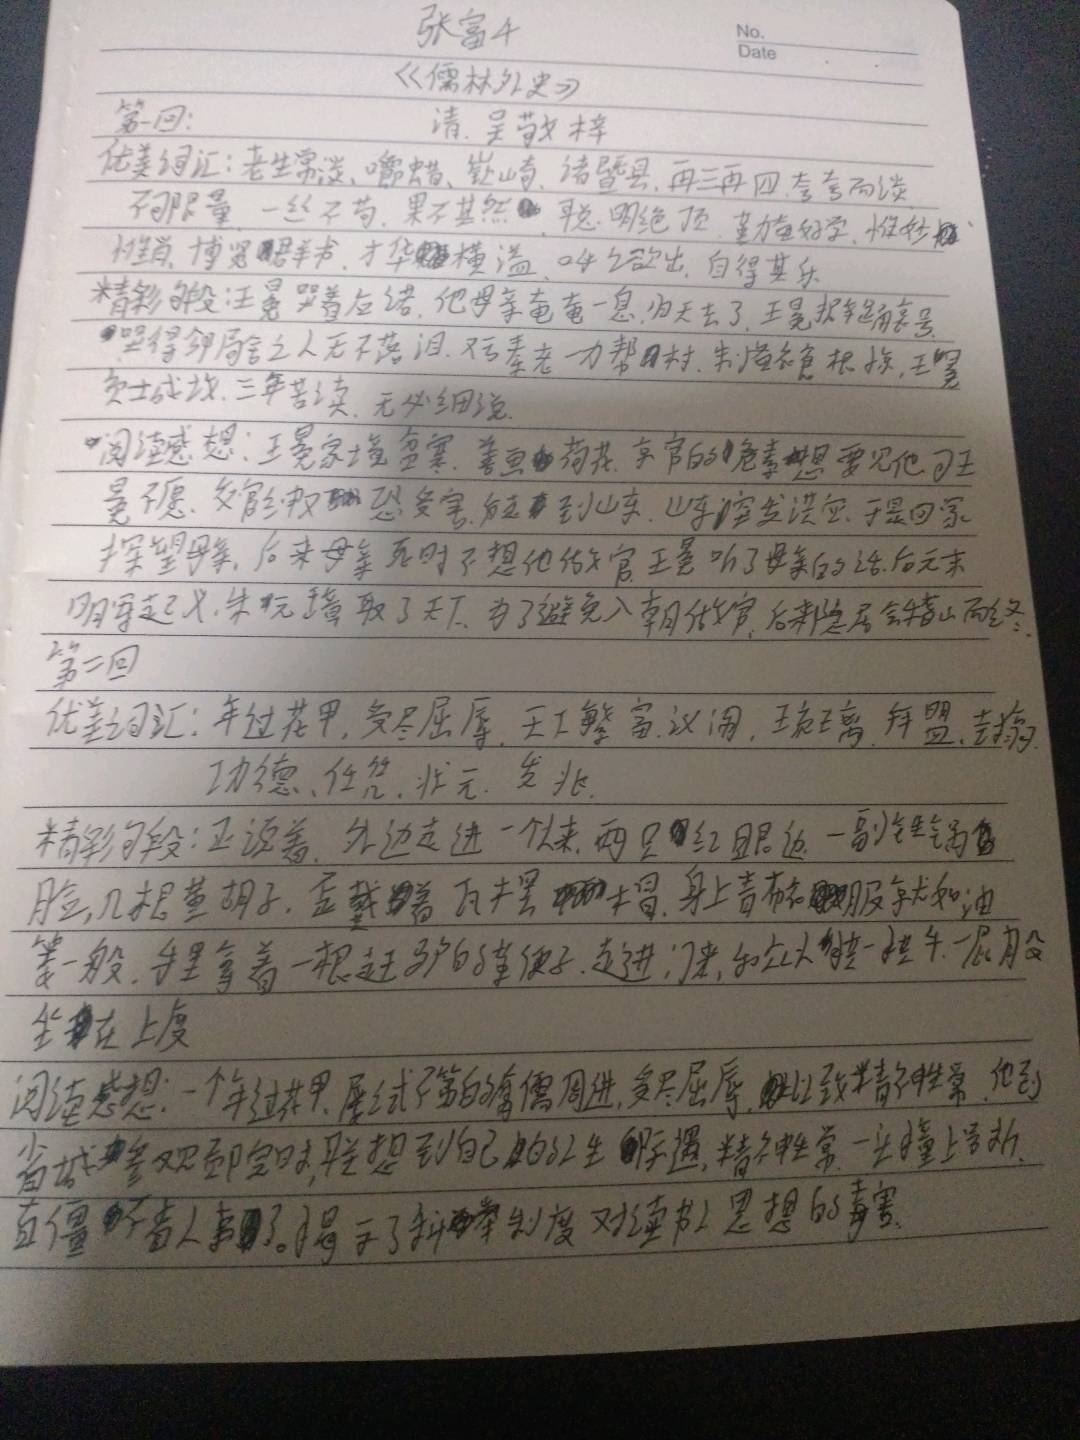 张富4
No.
Date
《儒林外史》
第一回: 清.吴敬梓
优美词汇:老生常谈、嚼蜡、嵚崎、诸暨县、再三再四、夸夸而谈
不可限量、一丝不苟、果不其然、聪明绝顶、勤奋好学、惟妙
惟肖、博览群书、才华横溢、呼之欲出、自得其乐
精彩句段:王冕哭着应诺.他母亲奄奄一息,归天去了.王冕擗踊哀号.
哭得邻舍之人无不落泪.又亏秦老一力帮村.制备衣衾棺椁,王冕
负土成坟.三年苦读.无必细说.
阅读感想:王冕家境贫寒.善画荷花.京官的危素想要见他可王
冕不愿.交官 恐受害.到山东.山东突发洪灾.于是回家
探望母亲.后来母亲死时不想他做官.王冕听了母亲的话.后元末
明军起义.朱元璋取了天下.为了避免入朝做官,后来隐居会稽山而终.
第二回
优美词汇:年过花甲,受尽屈辱,天下繁富.议闹,玻璃.拜盟.
功德、任凭、状元、先兆.
精彩句段:正说着.外边走进一个人来.两只红眼边.一副锅铁
脸,几根黄胡子.歪戴着瓦楞帽.身上青布衣服就如油
篓一般.手里拿着一根赶驴的鞭子.走进门来,和众人拱一拱手.一屁股
坐在上席
阅读感想:一个年过花甲.屡试不第的腐儒周进,受尽屈辱.以致精神性常.他到
省城参观贡院时,联想到自己的人生际遇.精神性常.一头撞上号板.
直僵不省人事了。揭示了科举制度对读书人思想的毒害.